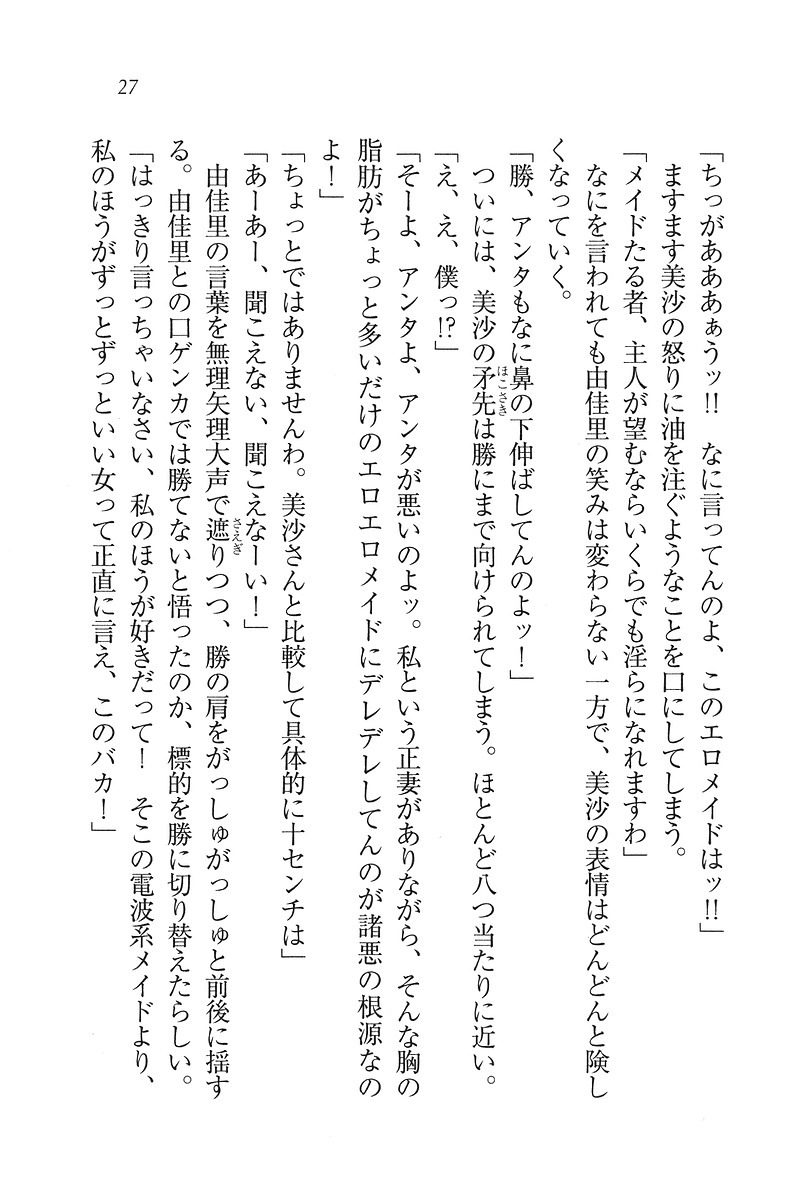 27
「ちっがあああぁうッ!!　なに言ってんのよ、このエロメイドはッ!!」
ますます美沙の怒りに油を注ぐようなことを口にしてしまう。
「メイドたる者、主人が望むならいくらでも淫らになれますわ」
なにを言われても由佳里の笑みは変わらない一方で、美沙の表情はどんどんと険し
くなっていく。
「勝、アンタもなに鼻の下伸ばしてんのよッ！」
ついには、美沙の矛先は勝にまで向けられてしまう。ほとんど八つ当たりに近い。
ほこさき
「え、え、僕っ!?」
「そーよ、アンタよ、アンタが悪いのよッ。私という正妻がありながら、そんな胸の
脂肪がちょっと多いだけのエロエロメイドにデレデレしてんのが諸悪の根源なの
よ！」
「ちょっとではありませんわ。美沙さんと比較して具体的に十センチは」
「あーあー、聞こえない、聞こえなーい！」
由佳里の言葉を無理矢理大声で遮りつつ、勝の肩をがっしゅがっしゅと前後に揺す
さえぎ
る。由佳里との口ゲンカでは勝てないと悟ったのか、標的を勝に切り替えたらしい。
「はっきり言っちゃいなさい、私のほうが好きだって！　そこの電波系メイドより、
私のほうがずっとずっといい女って正直に言え、このバカ！」